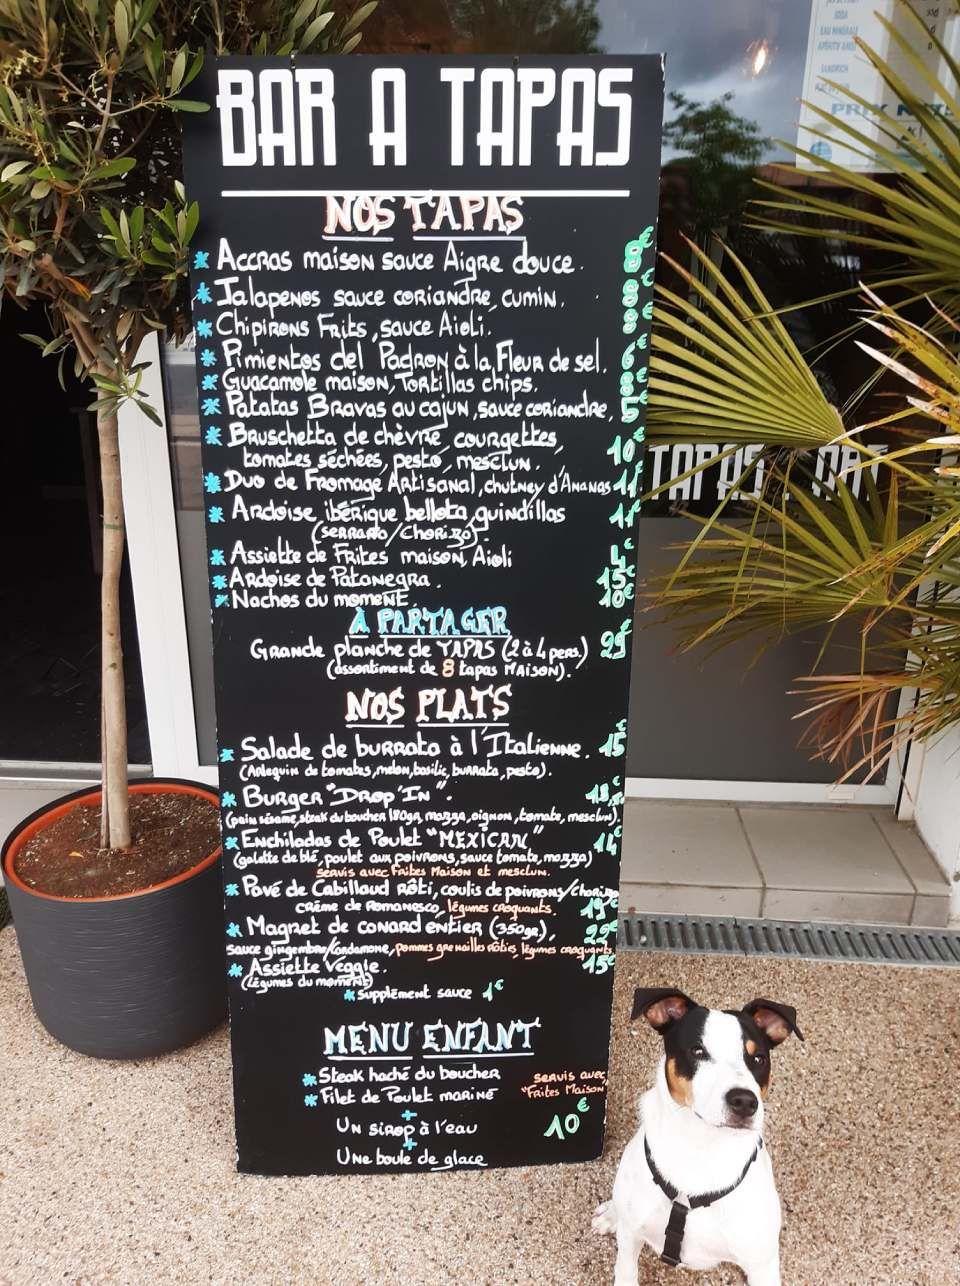 BAR A TAPAS
NOS TAPAS
* Accras maison sauce Aigre douce. 8€
* Jalapenos sauce coriandre, cumin. 8€
* Chipirons Frits, sauce Aioli. 8€
* Pimientos del Padron à la Fleur de sel. 6€
* Guacamole maison, Tortillas chips. 8€
* Patatas Bravas au cajun, sauce coriandre, 5€
* Bruschetta de chèvre, courgettes, 10€
tomates séchées, pesto, mesclun.
* Duo de Fromage Artisanal, chutney d'Ananas 11€
* Ardoise ibérique bellota, guindillas 11€
(serrano/Chorizo).
* Assiette de Frites maison, Aioli 4€
* Ardoise de Patanegra. 15€
* Nachos du moment 10€
À PARTAGER
Grande planche de TAPAS (2 à 4 pers.) 29€
(assortiment de 8 tapas MAISON).
NOS PLATS
* Salade de burrata à l'Italienne. 15€
(Arlequin de tomates, melon, basilic, burrata, pesto).
* Burger "Drop'In".
(pain sésame, steak du boucher 180gr, mozza, oignon, tomate, mesclun).
* Enchiladas de Poulet "MEXICAN" 14€
(galette de blé, poulet aux poivrons, sauce tomate, mozza)
servis avec Frites Maison et mesclun.
* Pavé de Cabillaud Rôti, coulis de poivrons/chorizo
crème de Romanesco, légumes croquants. 19€
* Magret de canard entier (350gr), 22€
sauce gingembre/Cardamone, pommes grenailles rôties, légumes croquants.
* Assiette veggie. 15€
(légumes du moment)
* supplément sauce 1€
MENU ENFANT
* Steak haché du boucher servis avec
* Filet de Poulet mariné "Frites Maison"
+
Un sirop à l'eau 10€
+
Une boule de glace
TAPAS
SODA
EAU MINERALE
SANDWICH
PRIX NETS